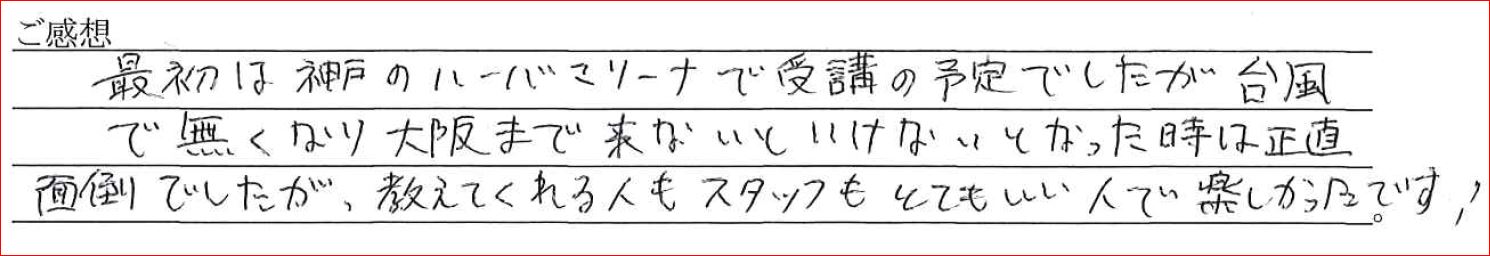 ご感想
最初は神戸のハーバマリーナで受講の予定でしたが台風
で無くなり大阪まで来ないといけないとなった時は正直
面倒でしたが、教えてくれる人もスタッフもとてもいい人で楽しかった。です!